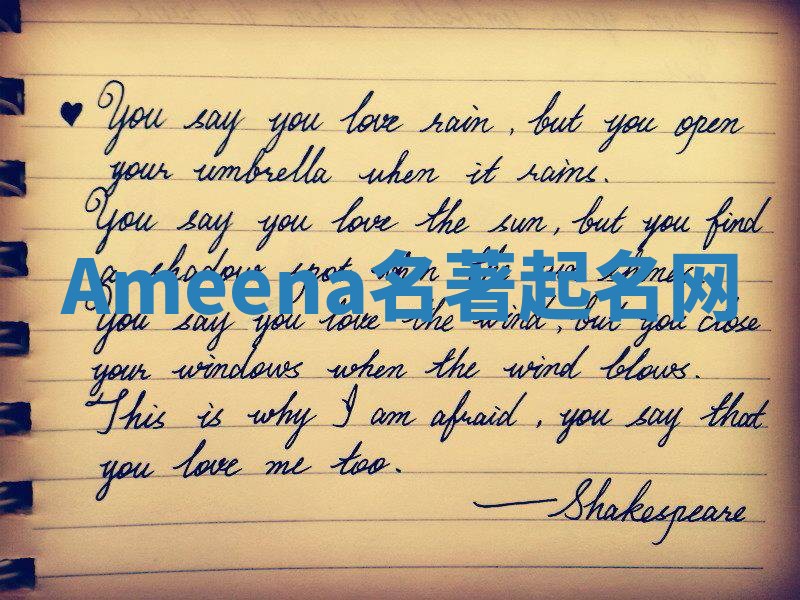 ♥ You say you love rain, but you open
your umbrella when it rains.
You say you love the sun, but you find
a shadow spot when the sun shines.
Ameena名著起名网
You say you love the wind, but you close
your windows when the wind blows.
This is why I am afraid, you say that
you love me too.
— Shakespeare